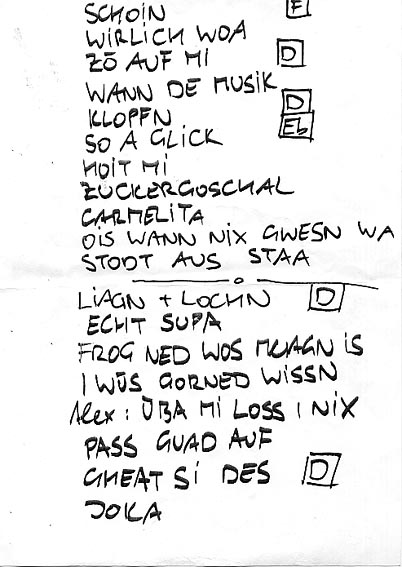 SCHOIN F
WIRLICH WOA
ZÖ AUF MI D
WANN DE MUSIK
KLOPFN D
SO A GLICK Eb
HOIT MI
ZUCKERGOSCHAL
CARMELITA
OIS WANN NIX GWESN WA
STODT AUS STAA
LIAGN + LOCHN D
ECHT SUPA
FROG NED WOS MUAGN IS
I WÜS GORNED WISSN
Alex: ÜBA MI LOSS I NIX
PASS GUAD AUF
GHEAT SI DES D
JOKA